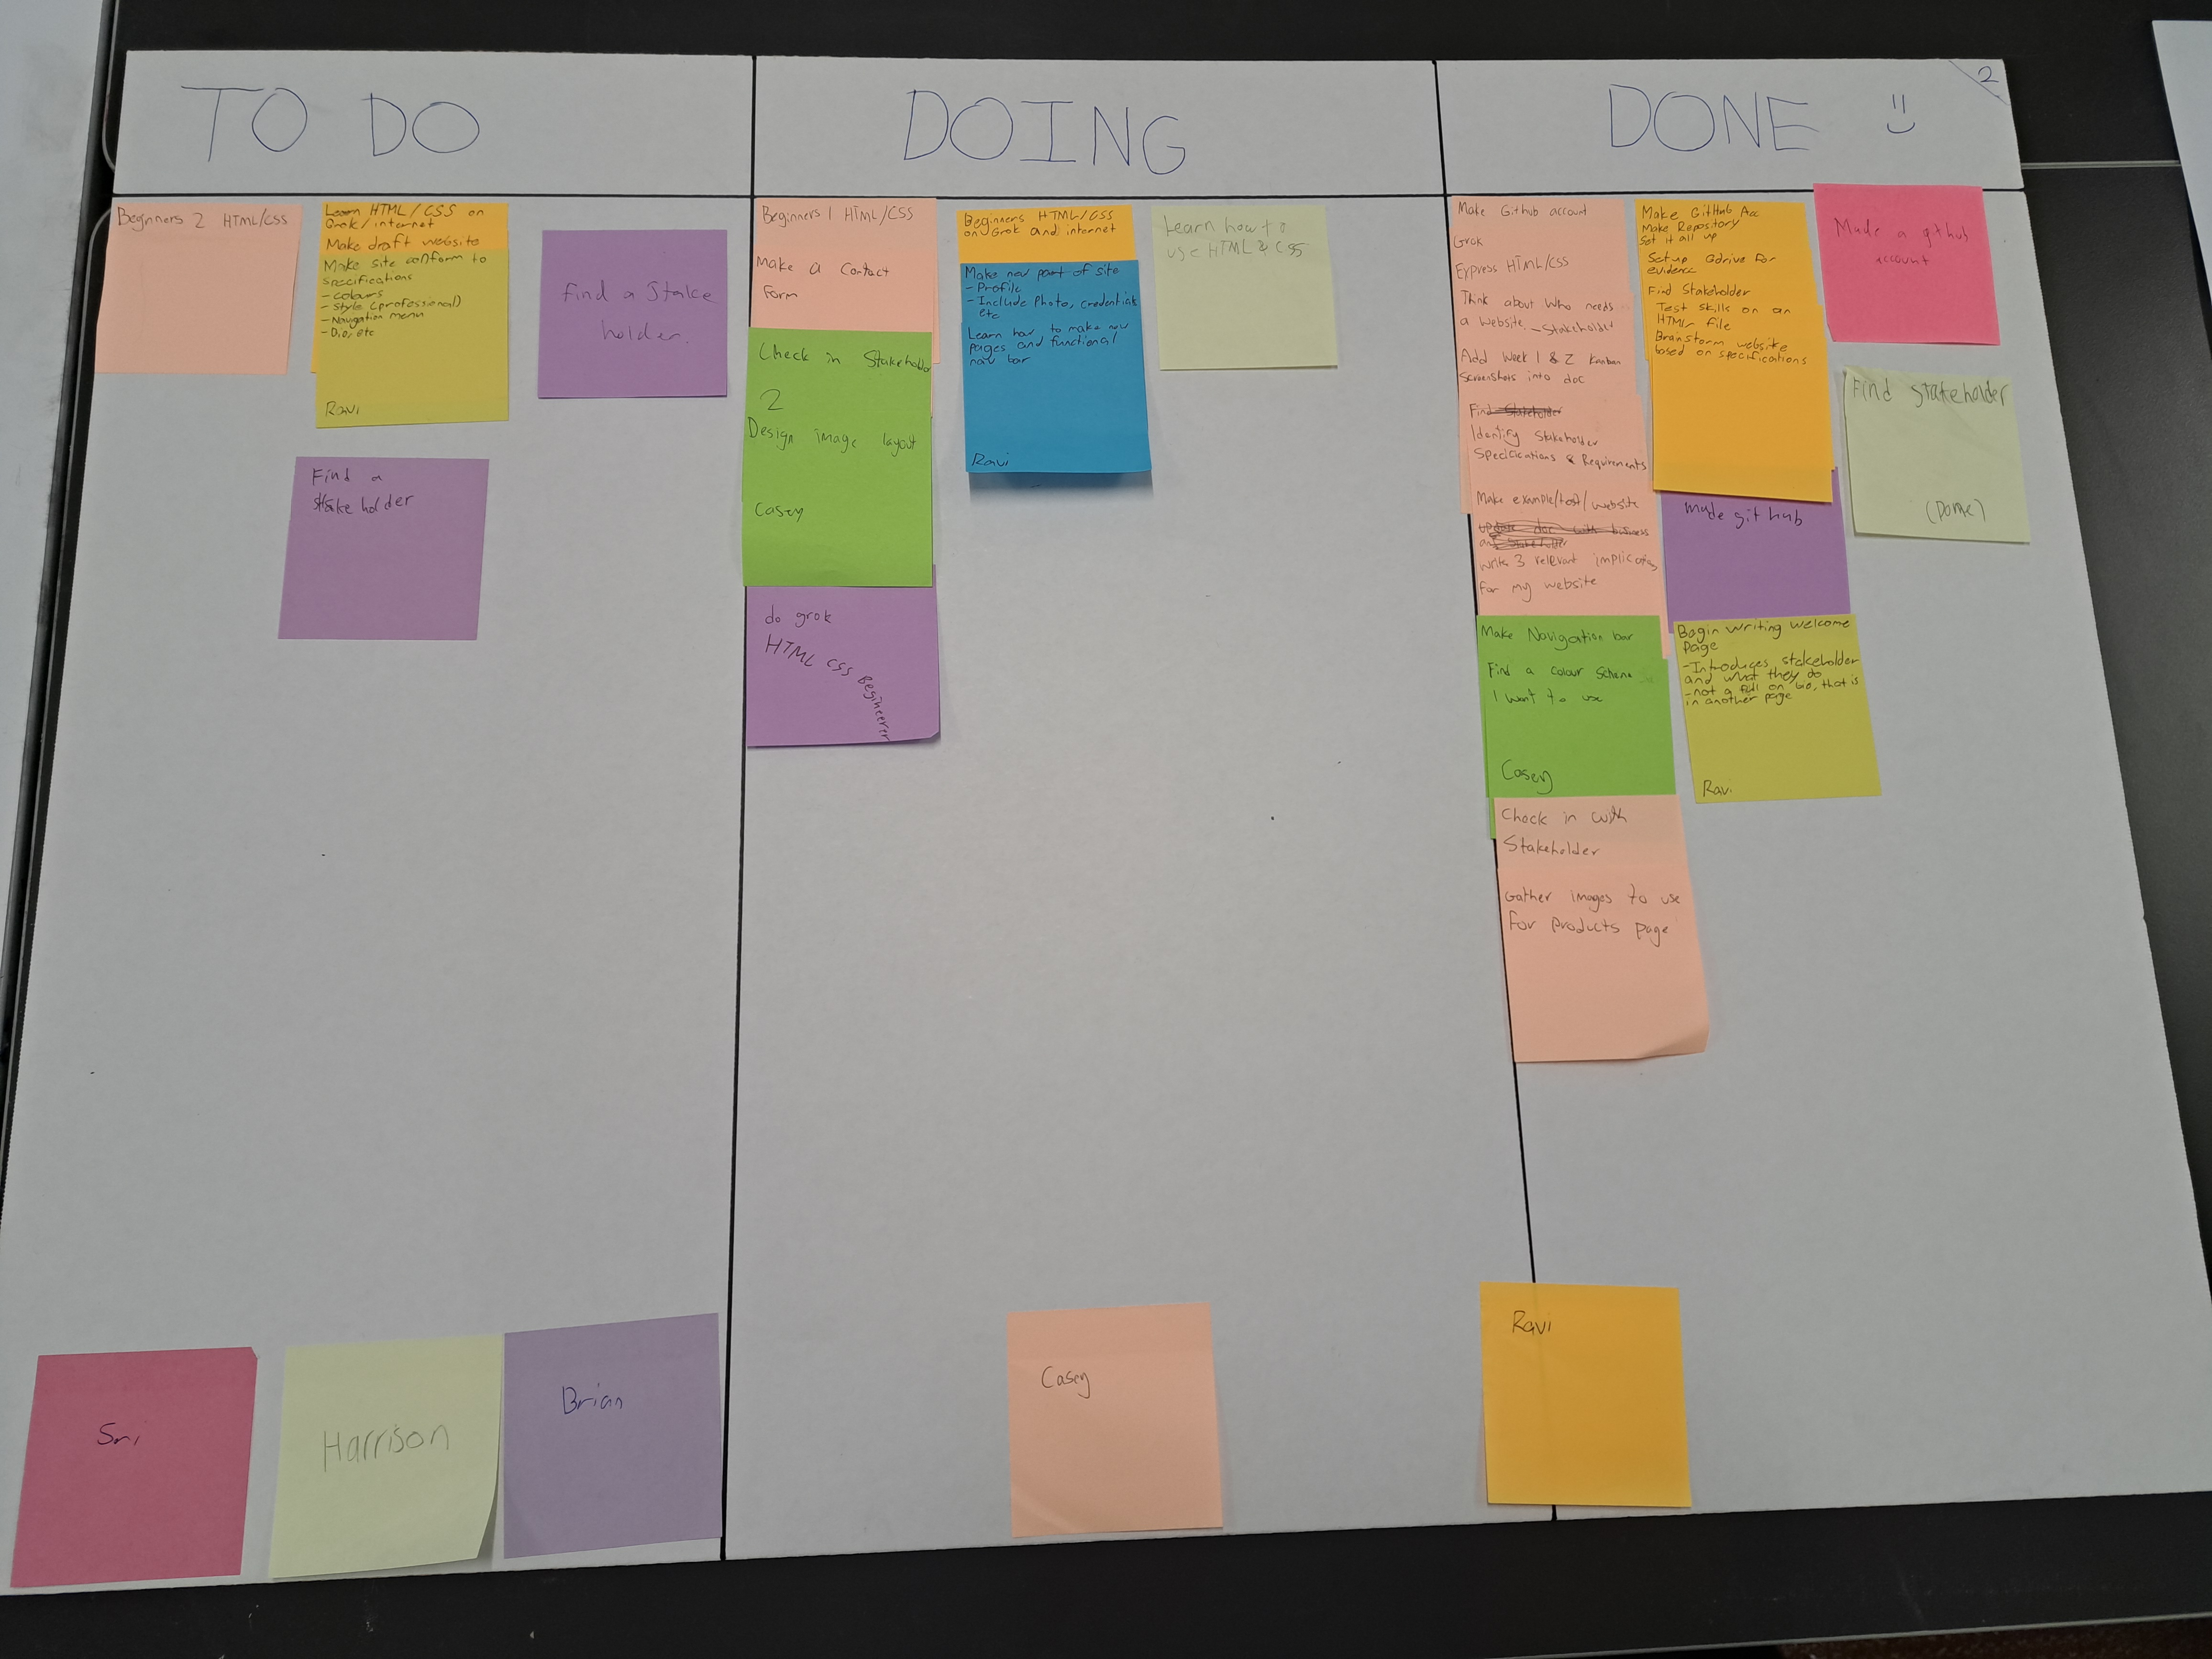 TO DO
Beginners 2 HTML/CSS
Learn HTML/CSS on
Grok/internet
Make draft website
Make site conform to
specifications
- colours
- style (professional)
- Navigation menu
- D.O, etc
Ravi
Find a
stakeholder
find a Stake
holder.
Sni
Harrison
Brian
DOING
Beginners 1 HTML/CSS
Make a contact
form
Check in Stakeholder
2
Design image layout
Casey
do grok
HTML CSS begineerer
Beginners HTML/CSS
on Grok and internet
Make new part of site
- Profile
- Include photo, credentials
etc
Learn how to make new
pages and functional
nav bar
Ravi
Learn how to
use HTML & CSS
Casey
DONE =)
2
Make Github account
Grok
Express HTML/CSS
Think about who needs
a website - Stakeholder
Add Week 1 & 2 Kanban
screenshots into doc
Find stakeholder
Identify stakeholder
Specifications & Requirements
Make example/test/website
write 3 relevant implications
for my website
Make Navigation bar
Find a colour scheme
I want to use
Casey
Check in with
Stakeholder
Gather images to use
for products page
Make GitHub Acc
Make Repository
Set it all up
Setup Gdrive for
evidence
Find Stakeholder
Test skills on an
HTML file
Brainstorm website
based on specifications
made github
Begin writing welcome
page
- Introduces stakeholder
and what they do
- not a full on bio, that is
in another page
Ravi
Made a github
account
Find stakeholder
(Done)
Ravi